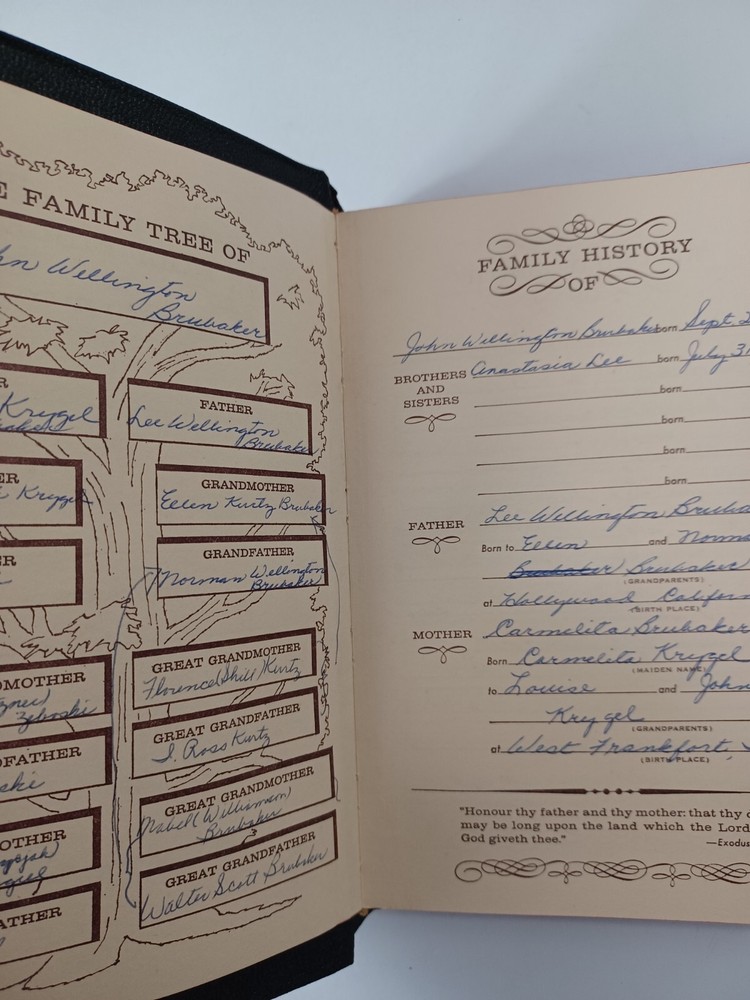 E FAMILY TREE OF
hn Wellington
Brubaker
R
Krygel
FATHER
Lee Wellington
Brubaker
ER
Krygel
GRANDMOTHER
Ellen Kurtz Brubaker
ER
GRANDFATHER
Norman Wellington
Brubaker
DMOTHER
Zelenski
GREAT GRANDMOTHER
Florence (Shill) Kurtz
DFATHER
ski
GREAT GRANDFATHER
S. Ross Kurtz
OTHER
GREAT GRANDMOTHER
Mabel (Williamson)
Brubaker
ATHER
GREAT GRANDFATHER
Walter Scott Brubaker
FAMILY HISTORY
OF
John Wellington Brubaker born Sept
BROTHERS AND SISTERS Anastasia Lee born July 31
born
born
born
born
FATHER Lee Wellington Bruba
Born to Ellen and Norma
Brubaker
(GRANDPARENTS)
at Hollywood Californ
(BIRTH PLACE)
MOTHER Carmelita Brubaker
Born Carmelita Krygel
(MAIDEN NAME)
to Louise and John
Krygel
(GRANDPARENTS)
at West Frankfort,
(BIRTH PLACE)
"Honour thy father and thy mother: that thy d
may be long upon the land which the Lord
God giveth thee."
—Exodus